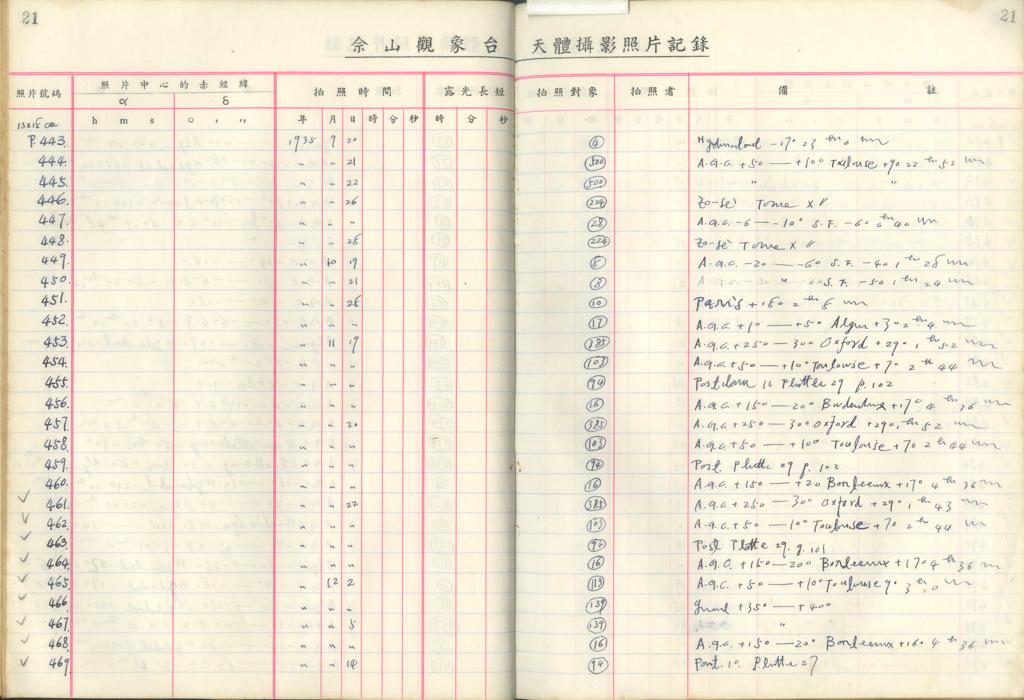 21
21
佘山觀象台 天體攝影照片記錄
照片號碼 照片中心的赤經緯 拍照時間 露光長短 拍照對象 拍照者 備註
α δ
h m s ○ , ,, 年 月 日 時 分 秒 時 分 秒
13x18 cm
P.443. 1935 9 20 4 -17° 23
444. " " 21 500 A.g.c. +5° — +10° Toulouse +9° 22 m 52
445. " " 22 500 " "
446. " " 26 224 Zo-sè Tome X
447. " " " 28 A.g.c. -6 — -10° S.F. -6° 6 m 40
448. " " 28 224 Zo-sè Tome X
449. " 10 19 8 A.g.c. -2° — -6° S.F. -4° 1 28
450. " " 21 8 " -6° S.F. -5° 1 24
451. " " 28 10 Paris +18° 2 8
452. " " " 17 A.g.c. +1° — +5° Alger +3° 2 4
453. " 11 19 385 A.g.c. +25° — 30° Oxford +29° 1 52
454. " " " 103 A.g.c. +5° — +10° Toulouse +7° 2 44
455. " " " 94 Platte 29 p. 102
456. " " " 16 A.g.c. +15° — 20° +17° 4 36
457. " " 20 385 A.g.c. +25° — 30° Oxford +29° 1 52
458. " " " 103 A.g.c. +5° — +10° Toulouse +7° 2 44
459. " " " 94 Post. Platte 29 p. 102
460. " " " 16 A.g.c. +15° — +20 Bordeaux +17° 4 36
461. " " 22 385 A.g.c. +25° — 30° Oxford +29° 1 43
462. " " " 103 A.g.c. +5° — 10° Toulouse +7° 2 44
463. " " " 94 Post Platte 29. p. 101
464. " " " 16 A.g.c. +15° — 20° Bordeaux +17° 4 36
465. " 12 2 113 A.g.c. +5° — +10° Toulouse 9° 3
466. " " " 139 +35° — +40°
467. " " 5 139 "
468. " " " 16 A.g.c. +15° — 20° Bordeaux +16° 4 36
469 " " 14 94 Platte 27